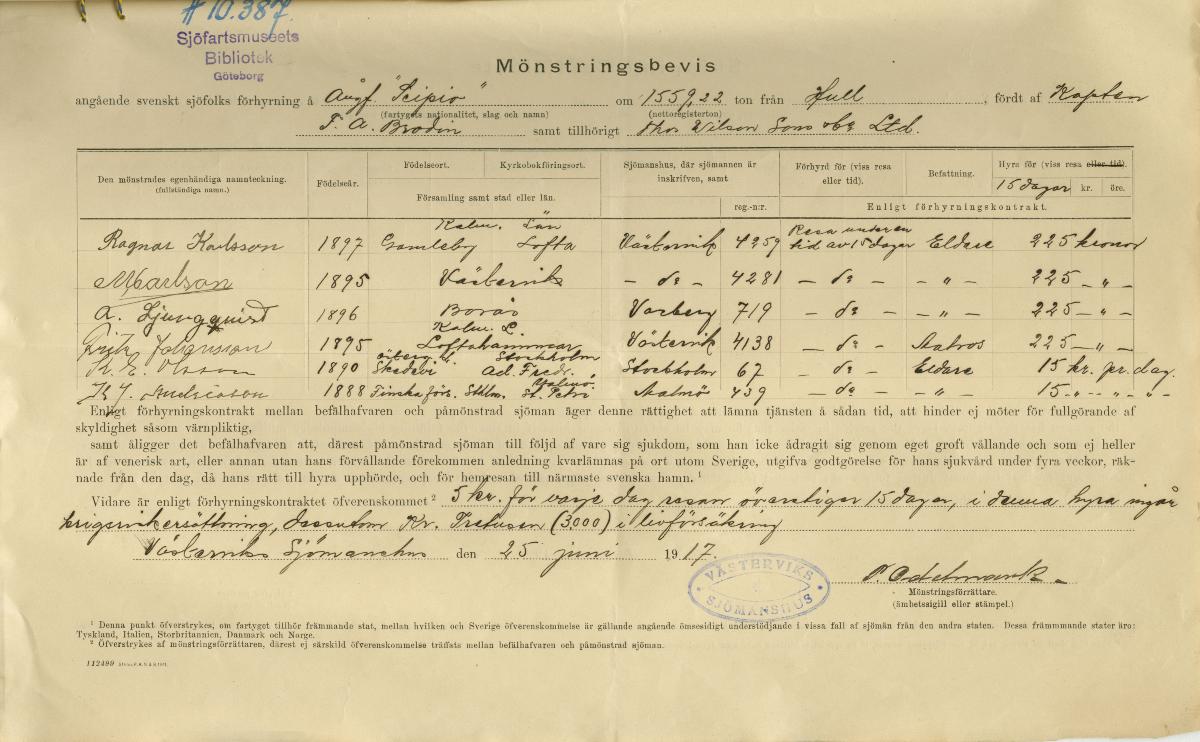 # 10.387.
Sjöfartsmuseets
Bibliotek
Göteborg
Mönstringsbevis
angående svenskt sjöfolks förhyrning å Ångf. "Scipio" om 1559,22 ton från Hull, fördt af Kapten
(fartygets nationalitet, slag och namn) (nettoregisterton)
F. A. Brodin samt tillhörigt Thos Wilson Sons & Co Ltd.
Den mönstrades egenhändiga namnteckning. (fullständiga namn.)
Födelseår.
Födelseort. Kyrkobokföringsort.
Församling samt stad eller län.
Sjömanshus, där sjömannen är inskrifven, samt
reg.-n:r.
Förhyrd för (viss resa eller tid).
Befattning.
Hyra för (viss resa eller tid).
15 dagar kr. öre.
Enligt förhyrningskontrakt.
Kalm. Län Resa under en
Ragnar Karlsson 1897 Gamleby Lofta Västervik 4259 tid av 15 dagar Eldare 225 kronor
1895 Västervik - do - 4281 - do - - " - 225 - " -
A. Ljungqvist 1896 Borås Varberg 719 - do - - " - 225 - " -
Kalm. L.
Johansson 1895 Loftahammar Västervik 4138 - do - Matros 225 - " -
Österg. l. Stockholm
K. E. Olsson 1890 Skedevi Ad. Fredr. Stockholm 67 - do - Eldare 15 kr. pr. dag.
Malmö.
Andersson 1888 Finska förs. Sthlm. St. Petri Malmö 439 - do - - " - 15 - " - " - " -
Enligt förhyrningskontrakt mellan befälhafvaren och påmönstrad sjöman äger denne rättighet att lämna tjänsten å sådan tid, att hinder ej möter för fullgörande af
skyldighet såsom värnpliktig,
samt åligger det befälhafvaren att, därest påmönstrad sjöman till följd af vare sig sjukdom, som han icke ådragit sig genom eget groft vållande och som ej heller
är af venerisk art, eller annan utan hans förvållande förekommen anledning kvarlämnas på ort utom Sverige, utgifva godtgörelse för hans sjukvård under fyra veckor, räk-
nade från den dag, då hans rätt till hyra upphörde, och för hemresan till närmaste svenska hamn. ¹
Vidare är enligt förhyrningskontraktet öfverenskommet ² 5 kr. för varje dag resan överstiger 15 dagar, i denna hyra ingår
krigsriskersättning, dessutom Kr. Tretusen (3,000) i livförsäkring
Västerviks Sjömanshus den 25 juni 1917.
VÄSTERVIKS
SJÖMANSHUS
Mönstringsförrättare.
(ämbetssigill eller stämpel.)
¹ Denna punkt öfverstrykes, om fartyget tillhör främmande stat, mellan hvilken och Sverige öfverenskommelse är gällande angående ömsesidigt understödjande i vissa fall af sjömän från den andra staten. Dessa främmande stater äro:
Tyskland, Italien, Storbritannien, Danmark och Norge.
² Öfverstrykes af mönstringsförrättaren, därest ej särskild öfverenskommelse träffats mellan befälhafvaren och påmönstrad sjöman.
112499